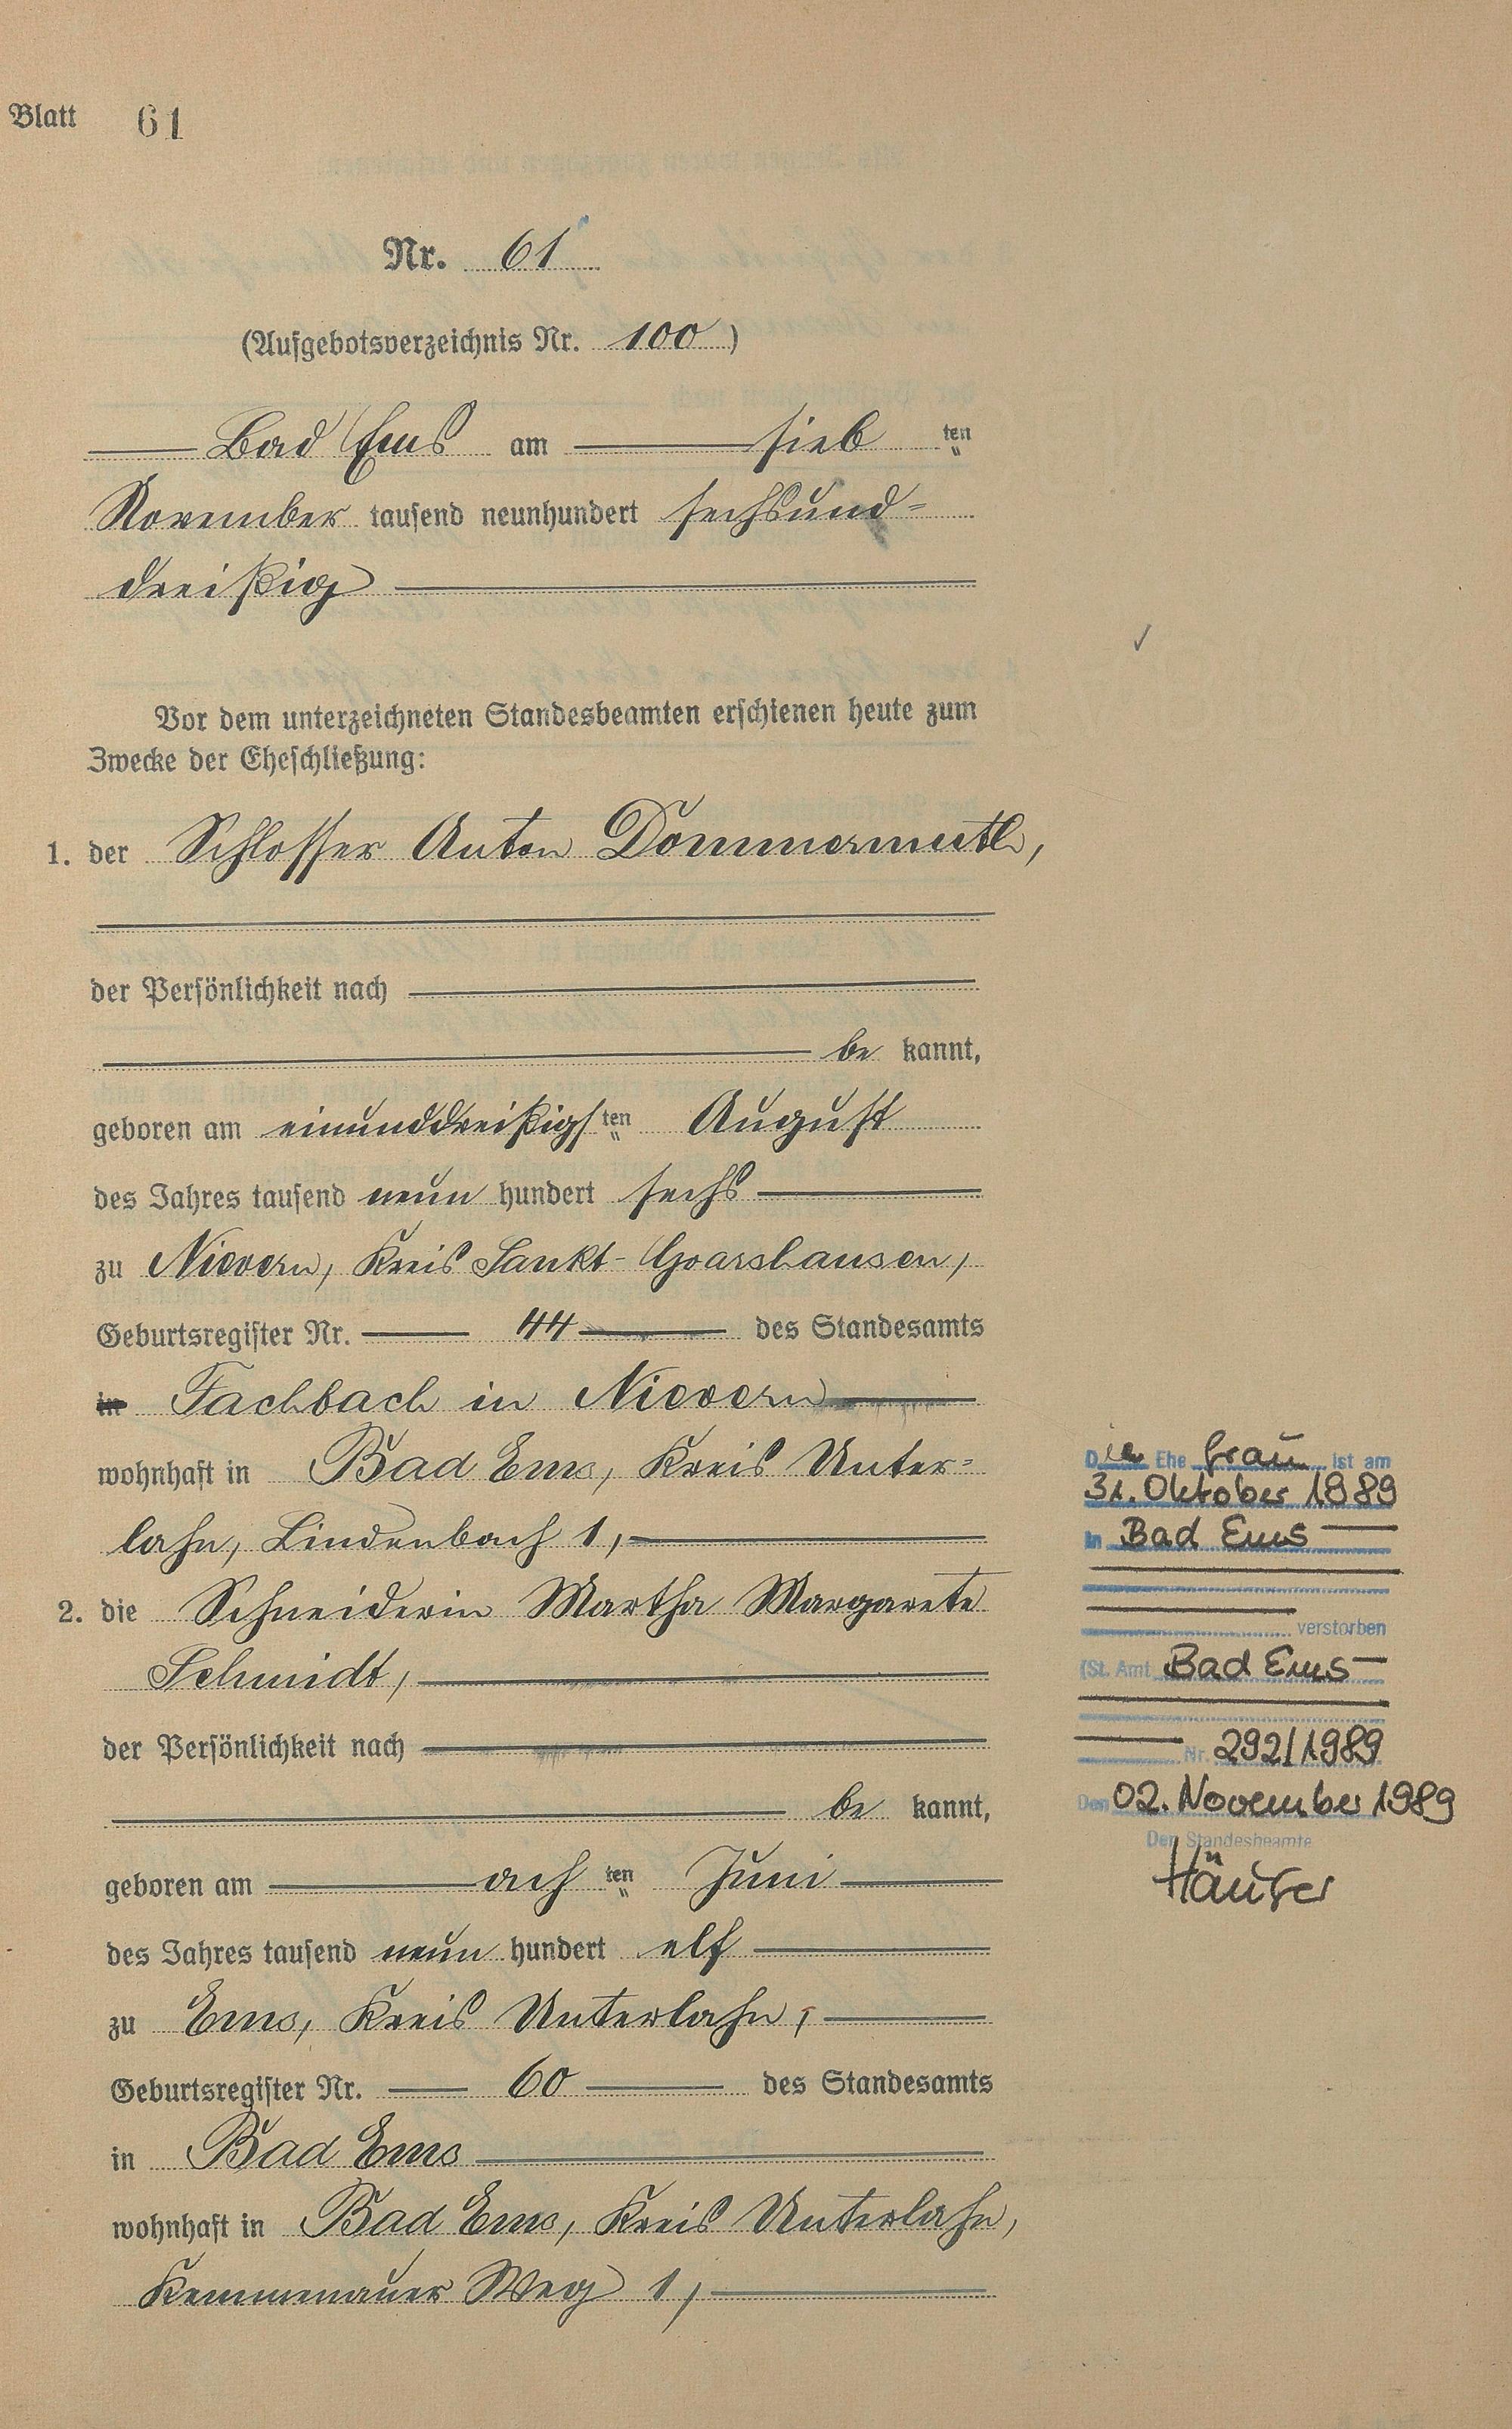 Blatt 61
Nr. 61
(Aufgebotsverzeichnis Nr. 100)
Bad Ems am sieb ten
November tausend neunhundert sechsund-
dreißig
Vor dem unterzeichneten Standesbeamten erschienen heute zum
Zwecke der Eheschließung:
1. der Schlosser Anton Dommermuth,
der Persönlichkeit nach
be kannt,
geboren am einunddreißigsten August
des Jahres tausend neun hundert sechs
zu Nievern, Kreis Sankt-Goarshausen,
Geburtsregister Nr. 44 des Standesamts
in Fachbach in Nievern
wohnhaft in Bad Ems, Kreis Unter-
lahn, Lindenbach 1,
2. die Schneiderin Martha Margarete
Schmidt,
der Persönlichkeit nach
be kannt,
geboren am ach ten Juni
des Jahres tausend neun hundert elf
zu Ems, Kreis Unterlahn,
Geburtsregister Nr. 60 des Standesamts
in Bad Ems
wohnhaft in Bad Ems, Kreis Unterlahn,
Kemmenauer Weg 1,
Die Ehefrau ist am
31. Oktober 1989
in Bad Ems
verstorben
(St. Amt Bad Ems
Nr. 292/1989
Den 02. November 1989
Der Standesbeamte